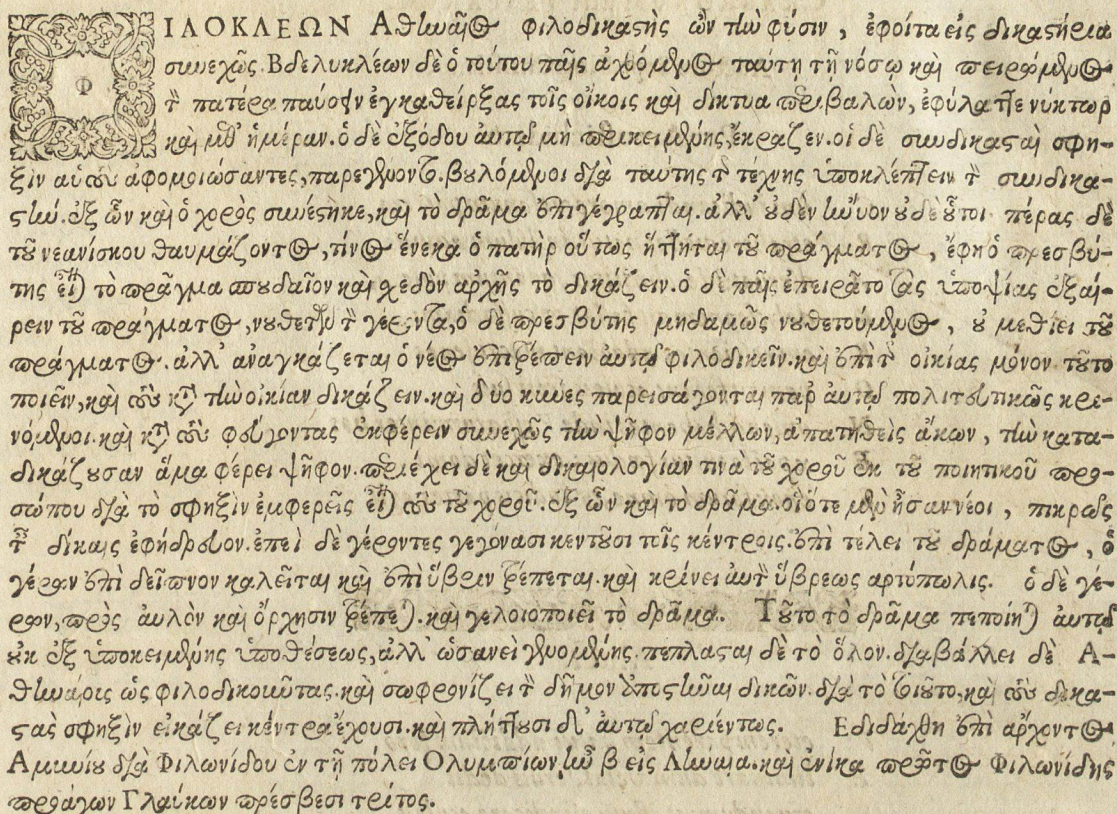 ΦΙΛΟΚΛΕΩΝ Αθηναῖος φιλοδικαστὴς ὢν τὴν φύσιν, ἐφοίτα εἰς δικαστήρια
συνεχῶς. Βδελυκλέων δὲ ὁ τούτου παῖς ἀχθόμενος ταύτῃ τῇ νόσῳ καὶ πειρώμενος
τὸν πατέρα παύειν ἐγκαθείρξας τοῖς οἴκοις καὶ δίκτυα περιβαλὼν, ἐφύλαττε νύκτωρ
καὶ μεθ' ἡμέραν. ὁ δὲ ἐξόδου αὐτῷ μὴ προκειμένης, ἔκραζεν. οἱ δὲ συνδικασταὶ σφη-
ξὶν αὑτοὺς ἀφομοιώσαντες, παρεγένοντο. βουλόμενοι διὰ ταύτης τῆς τέχνης ὑποκλέπτειν τὸν συνδικα-
στήν. ἐξ ὧν καὶ ὁ χορὸς συνέστηκε, καὶ τὸ δρᾶμα ἐπιγέγραπται. ἀλλ' οὐδὲν ἤνυον οὐδὲ οὗτοι πέρας δὲ
τοῦ νεανίσκου θαυμάζοντος, τίνος ἕνεκα ὁ πατὴρ οὕτως ἥττηται τοῦ πράγματος, ἔφη ὁ πρεσβύ-
της εἶναι τὸ πρᾶγμα σπουδαῖον καὶ σχεδὸν ἀρχῆς τὸ δικάζειν. ὁ δὲ παῖς ἐπειρᾶτο τὰς ὑποψίας ἐξαί-
ρειν τοῦ πράγματος, νουθετῶν τὸν γέροντα, ὁ δὲ πρεσβύτης μηδαμῶς νουθετούμενος, οὐ μεθίει τοῦ
πράγματος. ἀλλ' ἀναγκάζεται ὁ νέος ἐπιτρέπειν αὐτῷ φιλοδικεῖν. καὶ ἐπὶ τῆς οἰκίας μόνον τοῦτο
ποιεῖν, καὶ τοὺς κατὰ τὴν οἰκίαν δικάζειν. καὶ δύο κύνες παρεισάγονται παρ' αὐτῷ πολιτευτικῶς κρι-
νόμενοι. καὶ κατὰ τοὺς φεύγοντας ἐκφέρειν συνεχῶς τὴν ψῆφον μέλλων, ἀπατηθεὶς ἄκων, τὴν κατα-
δικάζουσαν ἅμα φέρει ψῆφον. περιέχει δὲ καὶ δικαιολογίαν τινὰ τοῦ χοροῦ ἐκ τοῦ ποιητικοῦ προ-
σώπου διὰ τὸ σφηξὶν ἐμφερεῖς εἶναι τοὺς τοῦ χοροῦ. ἐξ ὧν καὶ τὸ δρᾶμα. οἳ ὅτε μὲν ἦσαν νέοι, πικρῶς
ταῖς δίκαις ἐφήδρευον. ἐπεὶ δὲ γέροντες γεγόνασι κεντοῦσι τοῖς κέντροις. ἐπὶ τέλει τοῦ δράματος, ὁ
γέρων ἐπὶ δεῖπνον καλεῖται καὶ ἐπὶ ὕβριν τρέπεται. καὶ κρίνει αὐτὸν ὕβρεως ἀρτόπωλις. ὁ δὲ γέ-
ρων, πρὸς αὐλὸν καὶ ὄρχησιν τρέπεται. καὶ γελοιοποιεῖ τὸ δρᾶμα. Τοῦτο τὸ δρᾶμα πεποίηται αὐτῷ
οὐκ ἐξ ὑποκειμένης ὑποθέσεως, ἀλλ' ὡσανεὶ γενομένης. πέπλασται δὲ τὸ ὅλον. διαβάλλει δὲ Α-
θηναίους ὡς φιλοδικοῦντας. καὶ σωφρονίζει τὸν δῆμον ἀποστῆναι δικῶν. διὰ τὸ τοιοῦτο, καὶ τοὺς δικα-
στὰς σφηξὶν εἰκάζει κέντρα ἔχουσι. καὶ πλήττουσι δι' αὐτῷ χαριέντως. Εδιδάχθη ἐπὶ ἄρχοντος
Αμινίου διὰ Φιλωνίδου ἐν τῇ πόλει Ολυμπίων, ἦν β εἰς Λήναια. καὶ ἐνίκα πρῶτος Φιλωνίδης
προάγων Γλαύκων πρέσβεσι τρίτος.